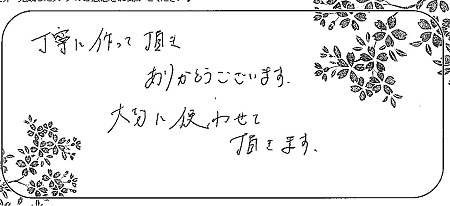 丁寧に作って頂き
ありがとうございます。
大切に使わせて
頂きます。